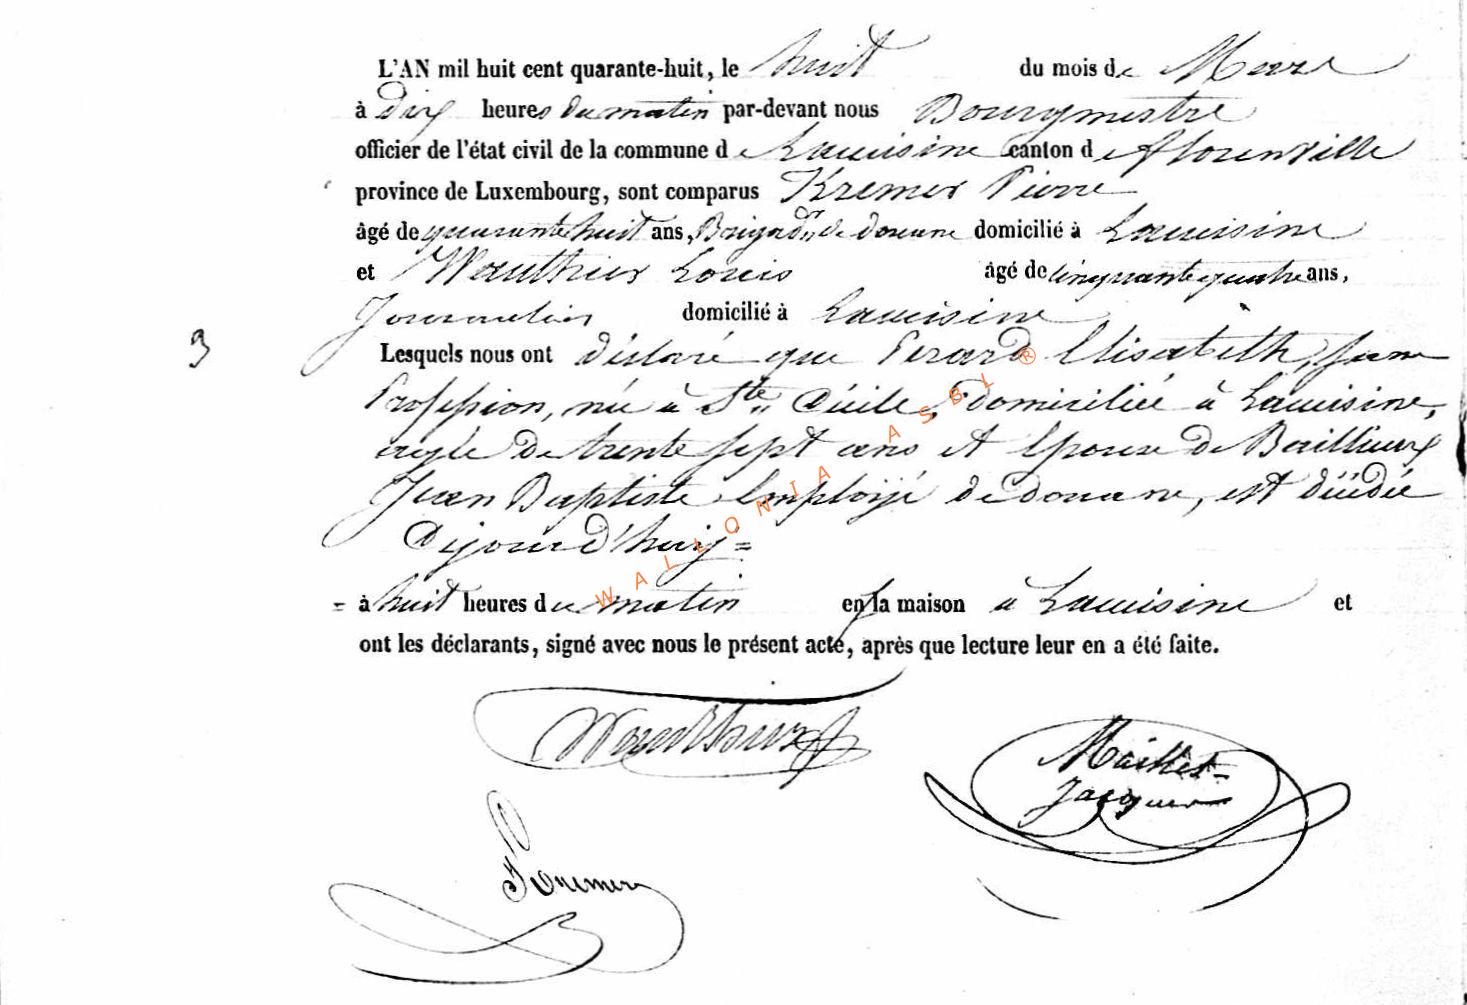 L'AN mil huit cent quarante-huit, le huit du mois de Mars
à Dix heures du matin par-devant nous Bourgmestre
officier de l'état civil de la commune de Lacuisine canton de Florenville
province de Luxembourg, sont comparus Kremer Pierre
âgé de quarante huit ans, Brigad.r de douane domicilié à Lacuisine
et Wauthier Louis âgé de cinquante quatre ans,
Journalier domicilié à Lacuisine
3 Lesquels nous ont déclaré que Perard Elisabeth, sans
Profession, née à Ste Cécile, domiciliée à Lacuisine,
agée de trente sept ans et Epouse de Baillieux
Jean Baptiste Employé de douane, est décédée
Aujourd'huy =
= à huit heures du matin en sa maison à Lacuisine et
ont les déclarants, signé avec nous le présent acte, après que lecture leur en a été faite.
WALLONIA ASBL ®
Wauthier
Maillet
Jacques
Kremer